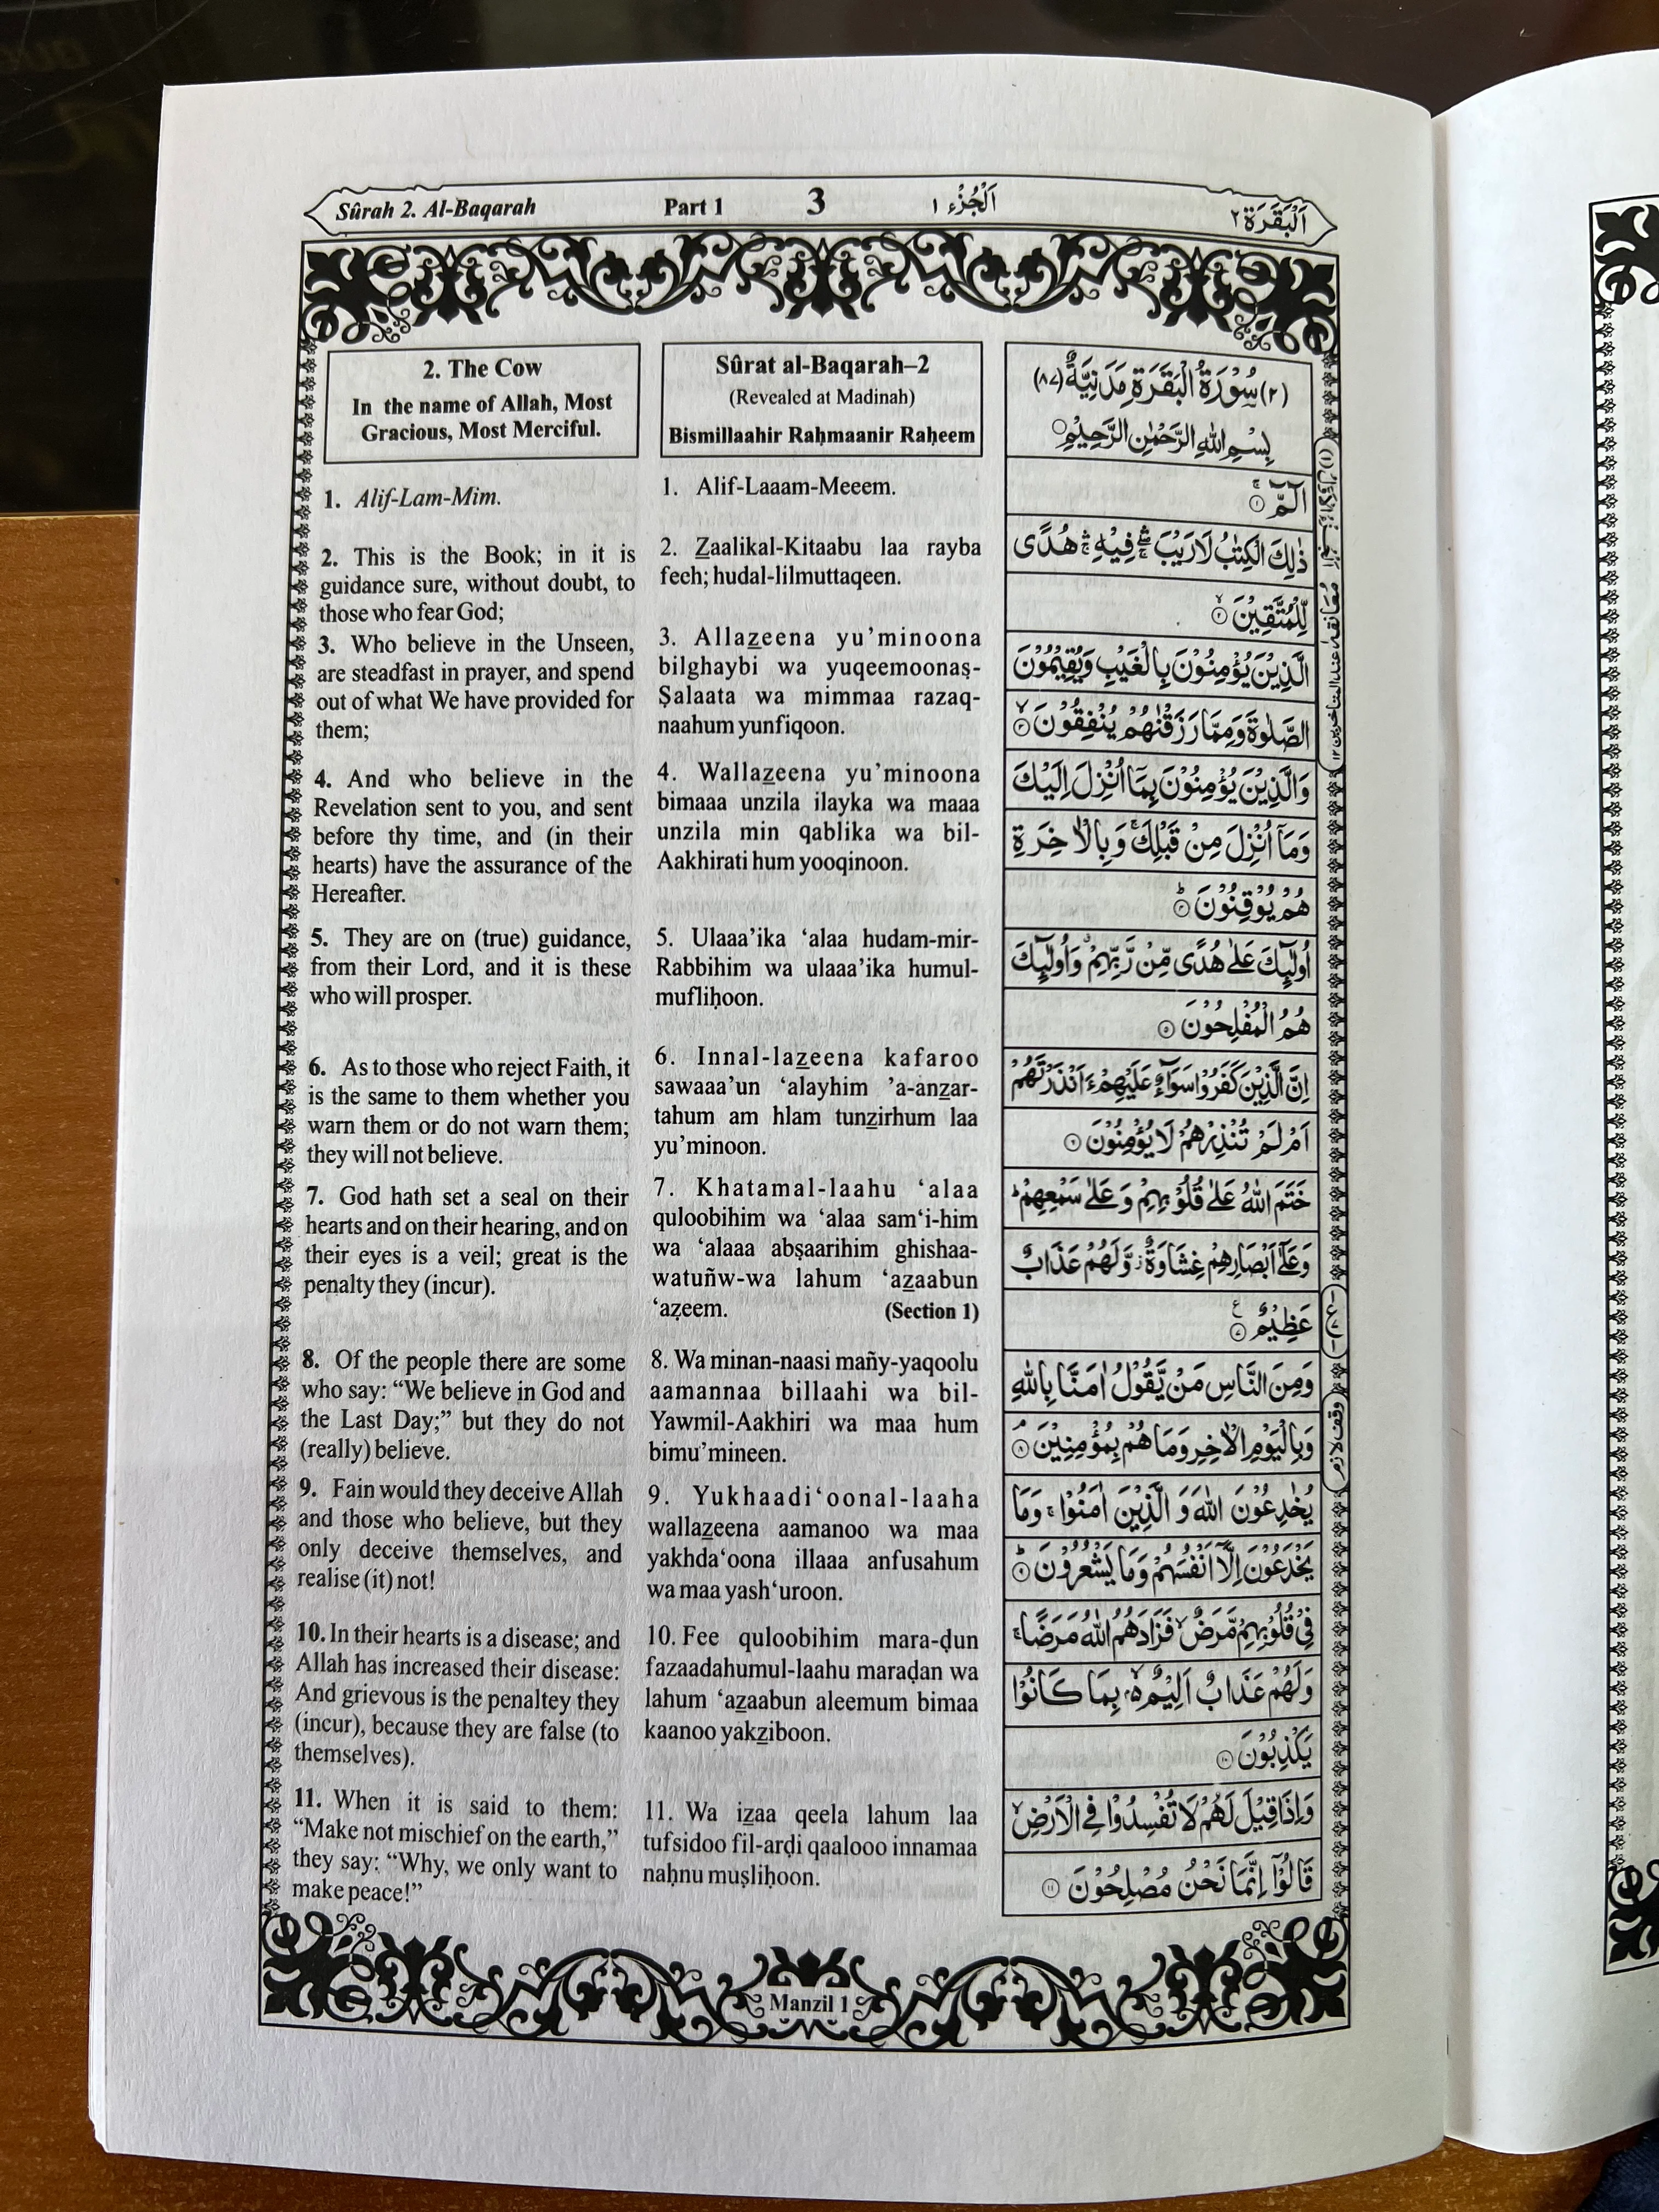 Sûrah 2. Al-Baqarah Part 1 3 اَلْجُزْء ١ اَلْبَقَرَة ٢
2. The Cow
In the name of Allah, Most
Gracious, Most Merciful.
1. Alif-Lam-Mim.
2. This is the Book; in it is
guidance sure, without doubt, to
those who fear God;
3. Who believe in the Unseen,
are steadfast in prayer, and spend
out of what We have provided for
them;
4. And who believe in the
Revelation sent to you, and sent
before thy time, and (in their
hearts) have the assurance of the
Hereafter.
5. They are on (true) guidance,
from their Lord, and it is these
who will prosper.
6. As to those who reject Faith, it
is the same to them whether you
warn them or do not warn them;
they will not believe.
7. God hath set a seal on their
hearts and on their hearing, and on
their eyes is a veil; great is the
penalty they (incur).
8. Of the people there are some
who say: “We believe in God and
the Last Day;” but they do not
(really) believe.
9. Fain would they deceive Allah
and those who believe, but they
only deceive themselves, and
realise (it) not!
10. In their hearts is a disease; and
Allah has increased their disease:
And grievous is the penaltey they
(incur), because they are false (to
themselves).
11. When it is said to them:
“Make not mischief on the earth,”
they say: “Why, we only want to
make peace!”
Sûrat al-Baqarah–2
(Revealed at Madinah)
Bismillaahir Raḥmaanir Raḥeem
1. Alif-Laaam-Meeem.
2. Z̲aalikal-Kitaabu laa rayba
feeh; hudal-lilmuttaqeen.
3. Allaz̲eena yu’minoona
bilghaybi wa yuqeemoonaṣ-
Ṣalaata wa mimmaa razaq-
naahum yunfiqoon.
4. Wallaz̲eena yu’minoona
bimaaa unzila ilayka wa maaa
unzila min qablika wa bil-
Aakhirati hum yooqinoon.
5. Ulaaa’ika ‘alaa hudam-mir-
Rabbihim wa ulaaa’ika humul-
mufliḥoon.
6. Innal-laz̲eena kafaroo
sawaaa’un ‘alayhim ’a-anz̲ar-
tahum am hlam tunz̲irhum laa
yu’minoon.
7. Khatamal-laahu ‘alaa
quloobihim wa ‘alaa sam‘i-him
wa ‘alaaa abṣaarihim ghishaa-
watuñw-wa lahum ‘az̲aabun
‘aẓeem. (Section 1)
8. Wa minan-naasi mañy-yaqoolu
aamannaa billaahi wa bil-
Yawmil-Aakhiri wa maa hum
bimu’mineen.
9. Yukhaadi‘oonal-laaha
wallaz̲eena aamanoo wa maa
yakhda‘oona illaaa anfusahum
wa maa yash‘uroon.
10. Fee quloobihim mara-ḍun
fazaadahumul-laahu maraḍan wa
lahum ‘az̲aabun aleemum bimaa
kaanoo yakz̲iboon.
11. Wa iz̲aa qeela lahum laa
tufsidoo fil-arḍi qaalooo innamaa
naḥnu muṣliḥoon.
(٢) سُوْرَةُ الْبَقَرَةِ مَدَنِيَّةٌ (٨٧)
بِسْمِ اللهِ الرَّحْمٰنِ الرَّحِيْمِ
الٓمّٓ ۚ ١
ذٰلِكَ الْكِتٰبُ لَا رَيْبَ ۛ فِيْهِ ۛ هُدًى
لِّلْمُتَّقِيْنَ ۙ ٢
الَّذِيْنَ يُؤْمِنُوْنَ بِالْغَيْبِ وَيُقِيْمُوْنَ
الصَّلٰوةَ وَمِمَّا رَزَقْنٰهُمْ يُنْفِقُوْنَ ۙ ٣
وَالَّذِيْنَ يُؤْمِنُوْنَ بِمَآ اُنْزِلَ اِلَيْكَ
وَمَآ اُنْزِلَ مِنْ قَبْلِكَ ۚ وَبِالْاٰخِرَةِ
هُمْ يُوْقِنُوْنَ ؕ ٤
اُولٰٓئِكَ عَلٰى هُدًى مِّنْ رَّبِّهِمْ ۙ وَاُولٰٓئِكَ
هُمُ الْمُفْلِحُوْنَ ٥
اِنَّ الَّذِيْنَ كَفَرُوْا سَوَآءٌ عَلَيْهِمْ ءَاَنْذَرْتَهُمْ
اَمْ لَمْ تُنْذِرْهُمْ لَا يُؤْمِنُوْنَ ٦
خَتَمَ اللهُ عَلٰى قُلُوْبِهِمْ وَعَلٰى سَمْعِهِمْ ؕ
وَعَلٰٓى اَبْصَارِهِمْ غِشَاوَةٌ ؗ وَّلَهُمْ عَذَابٌ
عَظِيْمٌ ٧ ع
وَمِنَ النَّاسِ مَنْ يَّقُوْلُ اٰمَنَّا بِاللهِ
وَبِالْيَوْمِ الْاٰخِرِ وَمَا هُمْ بِمُؤْمِنِيْنَ ۘ ٨
يُخٰدِعُوْنَ اللهَ وَالَّذِيْنَ اٰمَنُوْا ۚ وَمَا
يَخْدَعُوْنَ اِلَّآ اَنْفُسَهُمْ وَمَا يَشْعُرُوْنَ ؕ ٩
فِيْ قُلُوْبِهِمْ مَّرَضٌ ۙ فَزَادَهُمُ اللهُ مَرَضًا ۚ
وَلَهُمْ عَذَابٌ اَلِيْمٌ ۢ ۙ بِمَا كَانُوْا
يَكْذِبُوْنَ ١٠
وَاِذَا قِيْلَ لَهُمْ لَا تُفْسِدُوْا فِي الْاَرْضِ ۙ
قَالُوْٓا اِنَّمَا نَحْنُ مُصْلِحُوْنَ ١١
وقف لازم
Manzil 1